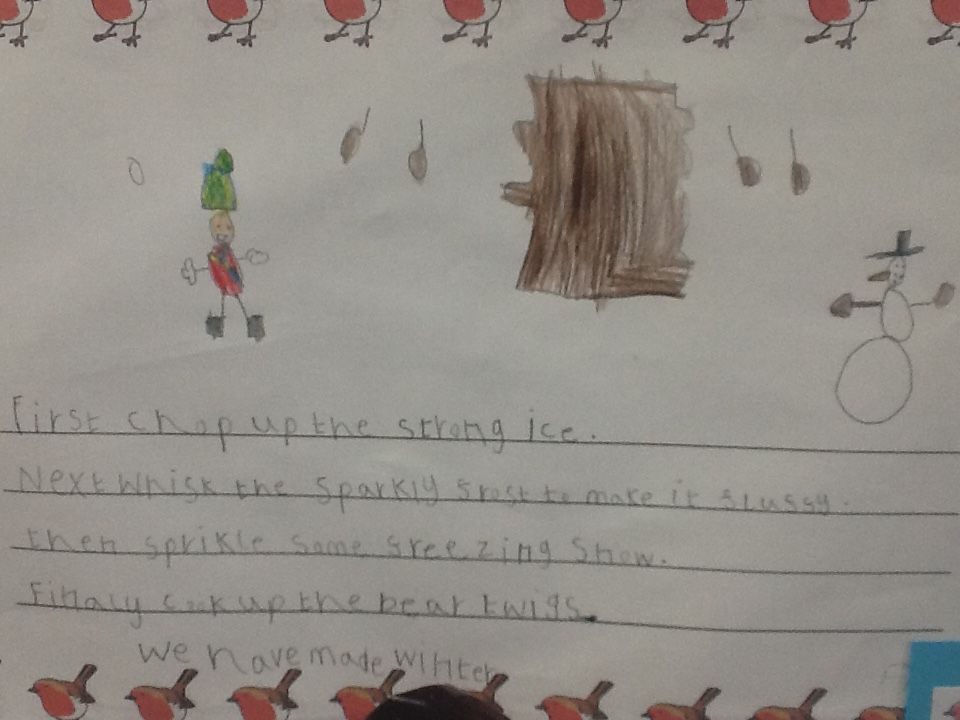 First chop up the strong ice.
Next whisk the sparkly srost to make it slussy.
then sprikle some sreezing snow.
Finaly cook up the bear twigs.
we have made winter